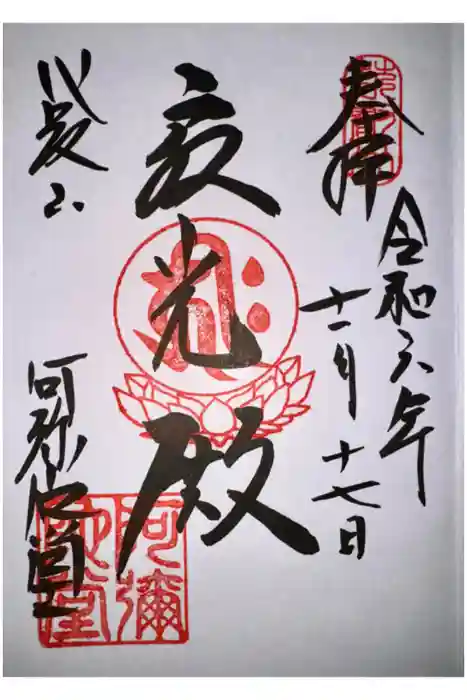 奉拝
令和六年
十一月十七日
寂光殿
比叡山
阿弥陀堂
阿彌
陀堂